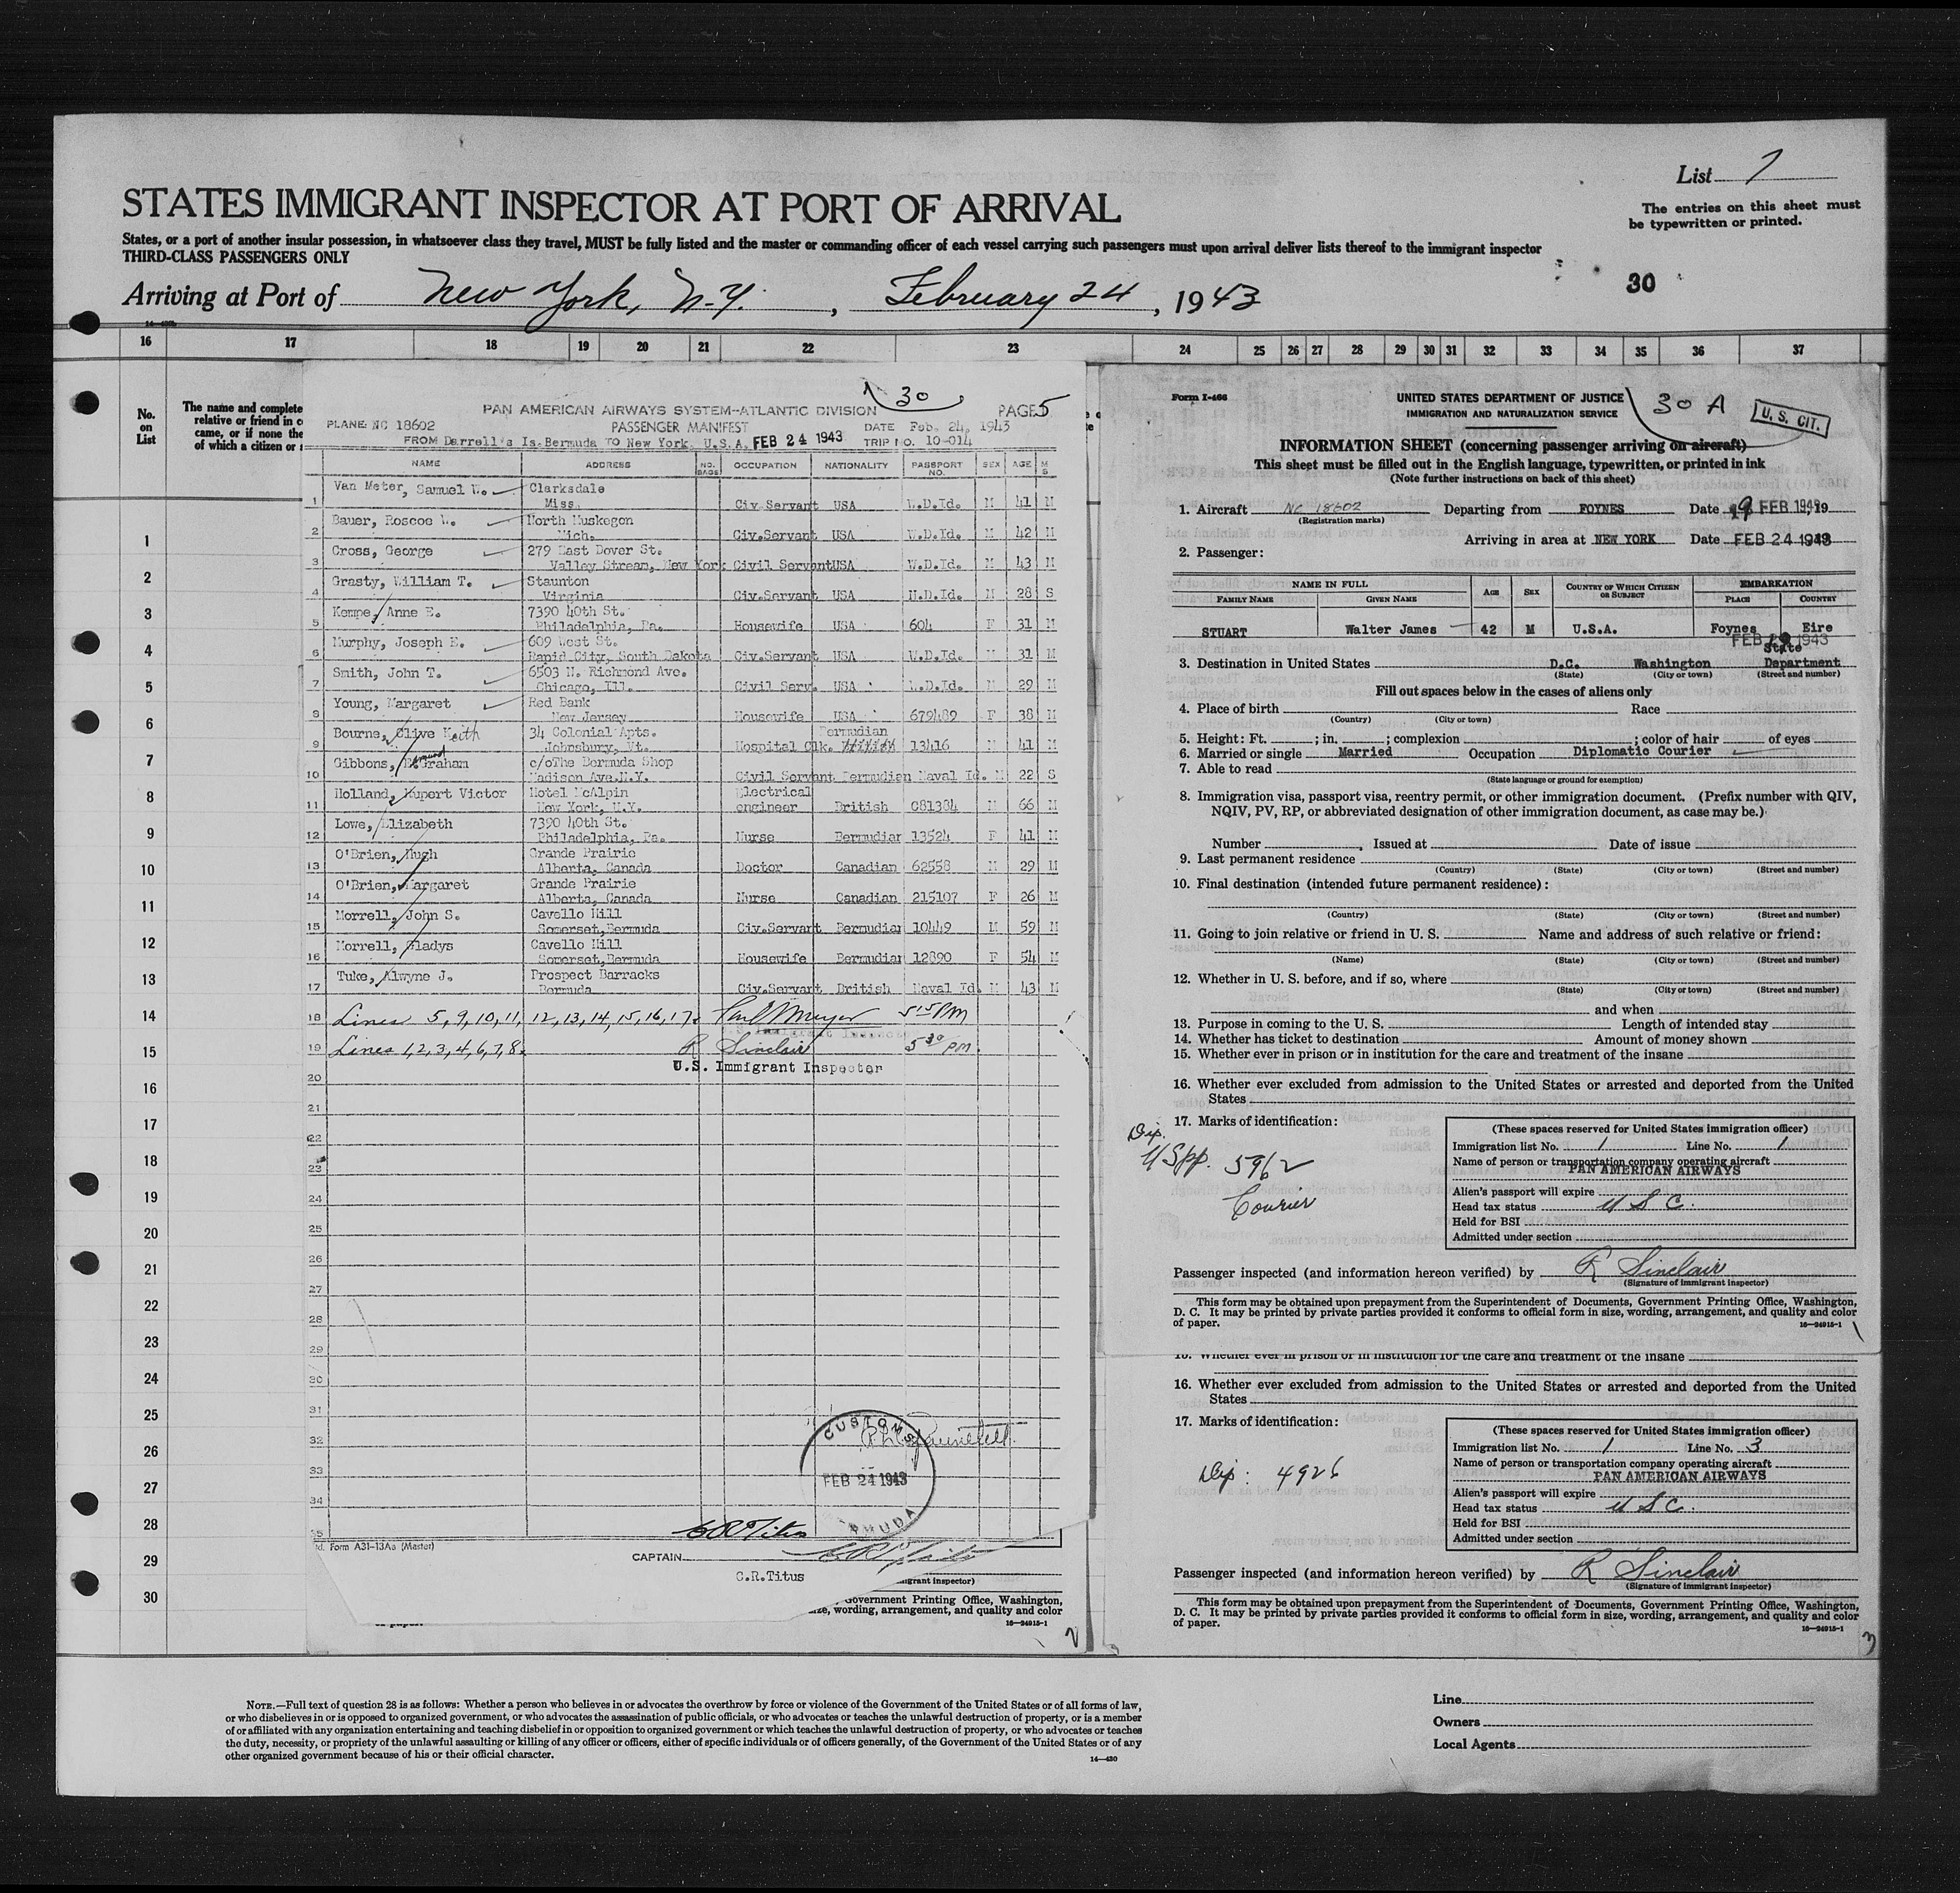 List 7
STATES IMMIGRANT INSPECTOR AT PORT OF ARRIVAL
The entries on this sheet must
be typewritten or printed.
States, or a port of another insular possession, in whatsoever class they travel, MUST be fully listed and the master or commanding officer of each vessel carrying such passengers must upon arrival deliver lists thereof to the immigrant inspector
THIRD-CLASS PASSENGERS ONLY
30
Arriving at Port of New York, N.Y., February 24, 1943
16 17 18 19 20 21 22 23 24 25 26 27 28 29 30 31 32 33 34 35 36 37
No. on List
The name and complete
relative or friend in c
came, or if none the
of which a citizen or
1
2
3
4
5
6
7
8
9
10
11
12
13
14
15
16
17
18
19
20
21
22
23
24
25
26
27
28
29
30
30
PAN AMERICAN AIRWAYS SYSTEM--ATLANTIC DIVISION PAGE 5
PLANE NC 18602 PASSENGER MANIFEST DATE Feb. 24, 1943
FROM Darrell's Is.Bermuda TO New York, U.S.A. FEB 24 1943 TRIP NO. 10-014
NAME ADDRESS NO. BAGS OCCUPATION NATIONALITY PASSPORT NO. SEX AGE M S
Van Meter, Samuel W. Clarksdale
1 Miss. Civ.Servant USA W.D.Id. M 41 M
Bauer, Roscoe W. North Muskegon
2 Mich. Civ.Servant USA W.D.Id. M 42 M
Cross, George 279 East Dover St.
3 Valley Stream, New York Civil Servant USA W.D.Id. M 43 M
Grasty, William T. Staunton
4 Virginia Civ.Servant USA W.D.Id. M 28 S
Kempe, Anne E. 7390 40th St.
5 Philadelphia, Pa. Housewife USA 604 F 31 M
Murphy, Joseph E. 609 West St.
6 Rapid City, South Dakota Civ.Servant USA W.D.Id. M 31 M
Smith, John T. 6503 N. Richmond Ave.
7 Chicago, Ill. Civil Serv. USA W.D.Id. M 29 M
Young, Margaret Red Bank
8 New Jersey Housewife USA 679489 F 38 M
Bourne, Clive Keith 34 Colonial Apts. Bermudian
9 Johnsbury, Vt. Hospital Clk. British 13416 M 41 M
Gibbons, E. Graham c/oThe Bermuda Shop
10 Madison Ave.N.Y. Civil Servant Bermudian Naval Id. M 22 S
Holland, Rupert Victor Hotel McAlpin Electrical
11 New York, N.Y. engineer British C81384 M 66 M
Lowe, Elizabeth 7390 40th St.
12 Philadelphia, Pa. Nurse Bermudian 13524 F 41 M
O'Brien, Hugh Grande Prairie
13 Alberta, Canada Doctor Canadian 62558 M 29 M
O'Brien, Margaret Grande Prairie
14 Alberta, Canada Nurse Canadian 215107 F 26 M
Morrell, John S. Cavello Hill
15 Somerset,Bermuda Civ.Servant Bermudian 10449 M 59 M
Morrell, Gladys Cavello Hill
16 Somerset,Bermuda Housewife Bermudian 12890 F 54 M
Tuke, Alwyne J. Prospect Barracks
17 Bermuda Civ.Servant British Naval Id. M 43 M
18 Lines 5, 9, 10, 11, 12, 13, 14, 15, 16, 17. 5 15 PM
19 Lines 1, 2, 3, 4, 6, 7, 8. R Sinclair 5 30 PM.
U.S. Immigrant Inspector
20
21
22
23
24
25
26
27
28
29
30
31
32
33
34
35
CUSTOMS
FEB 24 1943
Form A31-13As (Master)
CAPTAIN C R Titus
C.R.Titus
migrant inspector)
Government Printing Office, Washington,
ize, wording, arrangement, and quality and color
16—24915-1
2
Form I-466
UNITED STATES DEPARTMENT OF JUSTICE
IMMIGRATION AND NATURALIZATION SERVICE
30 A
U. S. CIT.
INFORMATION SHEET (concerning passenger arriving on aircraft)
This sheet must be filled out in the English language, typewritten, or printed in ink
(Note further instructions on back of this sheet)
1. Aircraft NC 18602 Departing from FOYNES Date 19 FEB 1943, 19
(Registration marks)
Arriving in area at NEW YORK Date FEB 24 1943
2. Passenger:
NAME IN FULL AGE SEX COUNTRY OF WHICH CITIZEN OR SUBJECT EMBARKATION
FAMILY NAME GIVEN NAME PLACE COUNTRY
STUART Walter James 42 M U.S.A. Foynes Eire
FEB 19 1943
3. Destination in United States D.C. Washington State Department
(State) (City or town) (Street and number)
Fill out spaces below in the cases of aliens only
4. Place of birth Race
(Country) (City or town)
5. Height: Ft. ; in. ; complexion ; color of hair of eyes
6. Married or single Married Occupation Diplomatic Courier
7. Able to read
(State language or ground for exemption)
8. Immigration visa, passport visa, reentry permit, or other immigration document. (Prefix number with QIV,
NQIV, PV, RP, or abbreviated designation of other immigration document, as case may be.)
Number , Issued at Date of issue
9. Last permanent residence
(Country) (State) (City or town) (Street and number)
10. Final destination (intended future permanent residence):
(Country) (State) (City or town) (Street and number)
11. Going to join relative or friend in U. S. Name and address of such relative or friend:
(Name) (State) (City or town) (Street and number)
12. Whether in U. S. before, and if so, where
(State) (City or town) (Street and number)
and when
13. Purpose in coming to the U. S. Length of intended stay
14. Whether has ticket to destination Amount of money shown
15. Whether ever in prison or in institution for the care and treatment of the insane
16. Whether ever excluded from admission to the United States or arrested and deported from the United
States
17. Marks of identification:
Dip.
USpp. 5962
Courier
(These spaces reserved for United States immigration officer)
Immigration list No. 1 Line No. 1
Name of person or transportation company operating aircraft
PAN AMERICAN AIRWAYS
Alien's passport will expire
Head tax status U S C.
Held for BSI
Admitted under section
Passenger inspected (and information hereon verified) by R Sinclair
(Signature of immigrant inspector)
This form may be obtained upon prepayment from the Superintendent of Documents, Government Printing Office, Washington,
D. C. It may be printed by private parties provided it conforms to official form in size, wording, arrangement, and quality and color
of paper.
16—24915-1
15. Whether ever in prison or in institution for the care and treatment of the insane
16. Whether ever excluded from admission to the United States or arrested and deported from the United
States
17. Marks of identification:
Dip: 4926
(These spaces reserved for United States immigration officer)
Immigration list No. 1 Line No. 3
Name of person or transportation company operating aircraft
PAN AMERICAN AIRWAYS
Alien's passport will expire
Head tax status U S C.
Held for BSI
Admitted under section
Passenger inspected (and information hereon verified) by R Sinclair
(Signature of immigrant inspector)
This form may be obtained upon prepayment from the Superintendent of Documents, Government Printing Office, Washington,
D. C. It may be printed by private parties provided it conforms to official form in size, wording, arrangement, and quality and color
of paper.
16—24915-1
3
NOTE.—Full text of question 28 is as follows: Whether a person who believes in or advocates the overthrow by force or violence of the Government of the United States or of all forms of law,
or who disbelieves in or is opposed to organized government, or who advocates the assassination of public officials, or who advocates or teaches the unlawful destruction of property, or is a member
of or affiliated with any organization entertaining and teaching disbelief in or opposition to organized government or which teaches the unlawful destruction of property, or who advocates or teaches
the duty, necessity, or propriety of the unlawful assaulting or killing of any officer or officers, either of specific individuals or of officers generally, of the Government of the United States or of any
other organized government because of his or their official character.
14—430
Line
Owners
Local Agents